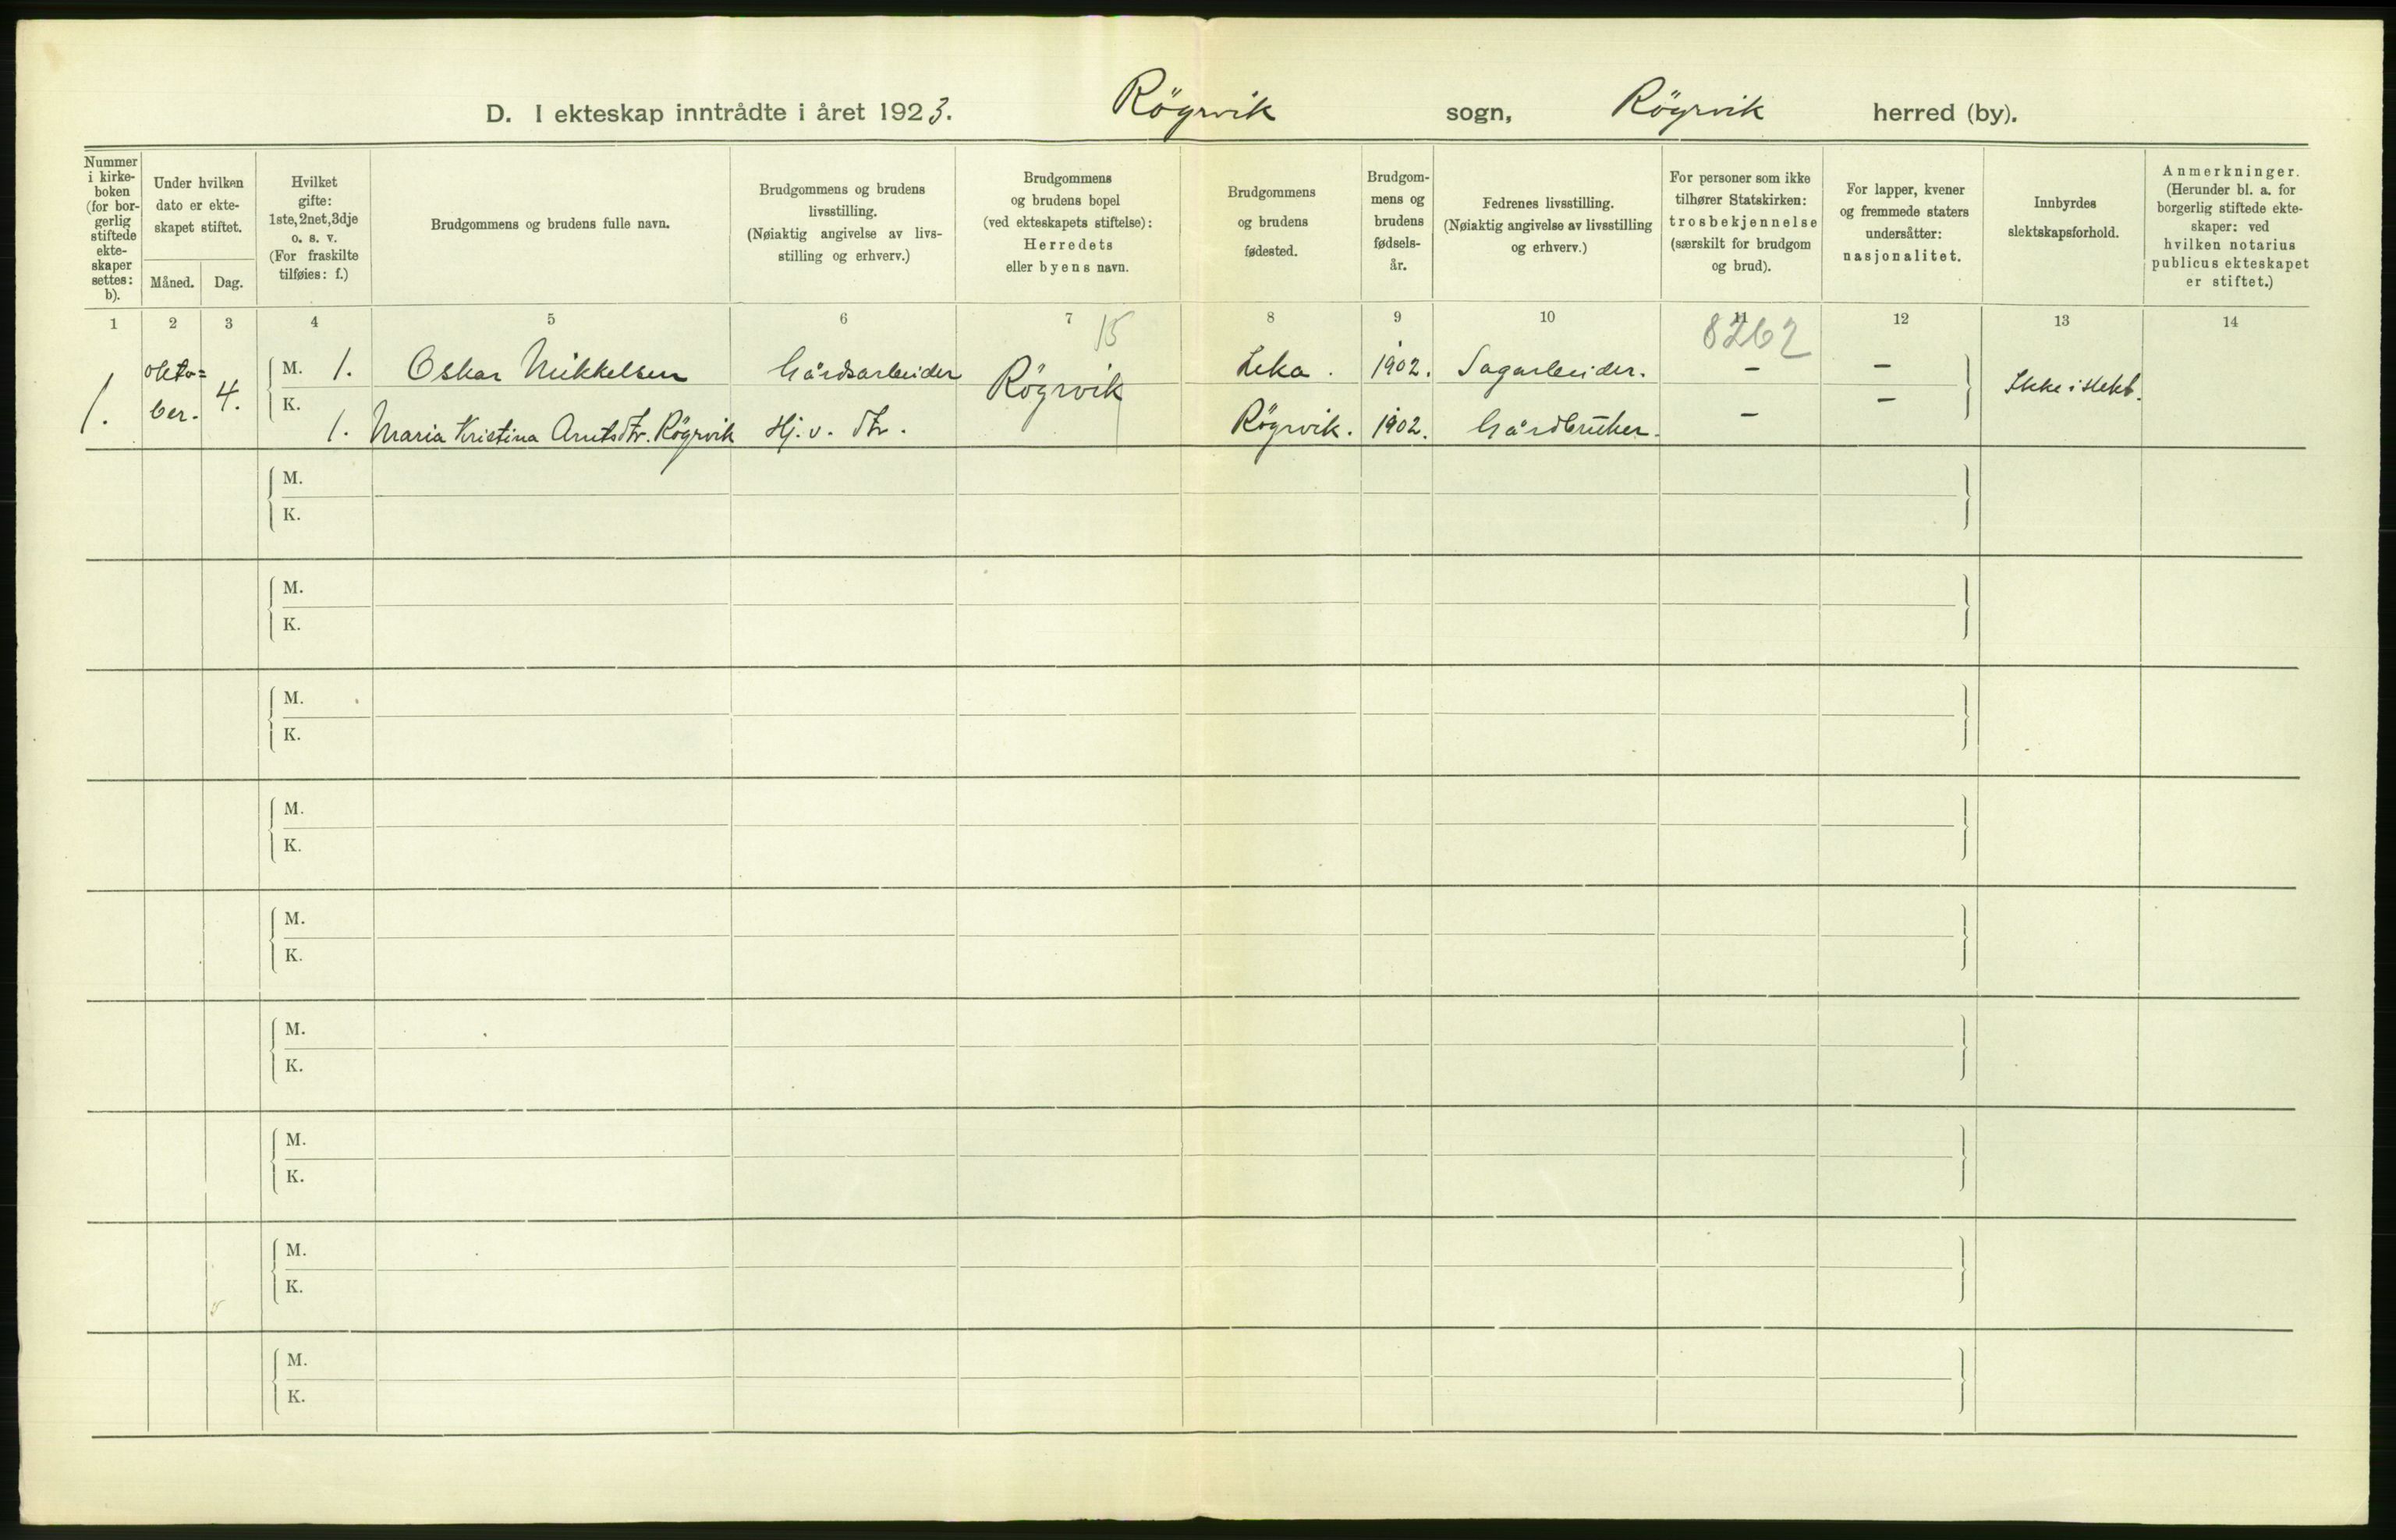 D. I ekteskap inntrådte i året 1923. Röyrvik sogn, Röyrvik herred (by).
Nummer
i kirke-
boken
(for bor-
gerlig
stiftede
ekte-
skaper
settes:
b).
Under hvilken
dato er ekte-
skapet stiftet.
Måned. Dag.
Hvilket
gifte:
1ste, 2net, 3dje
o. s. v.
(For fraskilte
tilføies: f.)
Brudgommens og brudens fulle navn.
Brudgommens og brudens
livsstilling.
(Nøiaktig angivelse av livs-
stilling og erhverv.)
Brudgommens
og brudens bopel
(ved ekteskapets stiftelse):
Herredets
eller byens navn.
Brudgommens
og brudens
fødested.
Brudgom-
mens og
brudens
fødsels-
år.
Fedrenes livsstilling.
(Nøiaktig angivelse av livsstilling
og erhverv.)
For personer som ikke
tilhører Statskirken:
trosbekjennelse
(særskilt for brudgom
og brud).
For lapper, kvener
og fremmede staters
undersåtter:
nasjonalitet.
Innbyrdes
slektskapsforhold.
Anmerkninger.
(Herunder bl. a. for
borgerlig stiftede ekte-
skaper: ved
hvilken notarius
publicus ekteskapet
er stiftet.)
1 2 3 4 5 6 7 8 9 10 11 12 13 14
15 8262
1. okto=
ber. 4.
M. 1. Oskar Mikkelsen Gårdsarbeider Röyrvik Leka. 1902. Sagarbeider. - - Ikke i slekt.
K. 1. Maria Kristina Arntsdtr. Röyrvik Hj. v. dtr. Röyrvik. 1902. Gårdbruker. - -
M.
K.
M.
K.
M.
K.
M.
K.
M.
K.
M.
K.
M.
K.
M.
K.
M.
K.